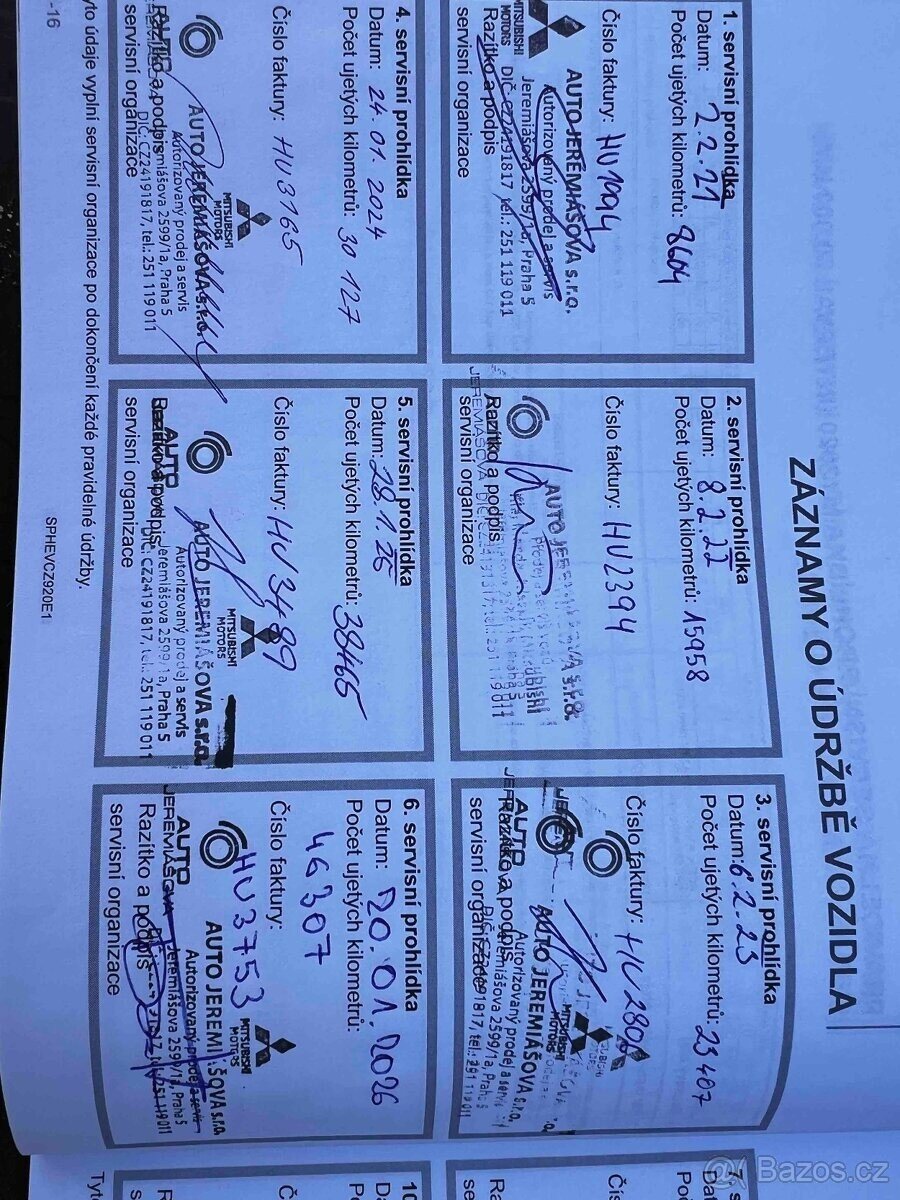 ZÁZNAMY O ÚDRŽBĚ VOZIDLA
1. servisní prohlídka
Datum: 2.2.21
Počet ujetých kilometrů: 8604
Číslo faktury: HU1994
Razítko a podpis
servisní organizace
MITSUBISHI
MOTORS
AUTO JEREMIÁŠOVA s.r.o.
Autorizovaný prodej a servis
Jeremiášova 2599/1a, Praha 5
DIČ: CZ24191817, tel.: 251 119 011
2. servisní prohlídka
Datum: 8.2.22
Počet ujetých kilometrů: 15958
Číslo faktury: HU2394
Razítko a podpis
servisní organizace
JEREMIÁŠOVA
3. servisní prohlídka
Datum: 6.2.23
Počet ujetých kilometrů: 23407
Číslo faktury:
Razítko a podpis
servisní organizace
AUTO
AUTO JEREMIÁŠOVA s.r.o.
Autorizovaný prodej a servis
Jeremiášova 2599/1a, Praha 5
4. servisní prohlídka
Datum: 24.01.2024
Počet ujetých kilometrů: 30 127
Číslo faktury: HU3165
Razítko a podpis
servisní organizace
AUTO
MITSUBISHI
MOTORS
AUTO JEREMIÁŠOVA s.r.o.
Autorizovaný prodej a servis
Jeremiášova 2599/1a, Praha 5
DIČ: CZ24191817, tel.: 251 119 011
5. servisní prohlídka
Datum: 28.1.25
Počet ujetých kilometrů: 38465
Číslo faktury: HU3489
Razítko a podpis
servisní organizace
AUTO
MITSUBISHI
MOTORS
AUTO JEREMIÁŠOVA s.r.o.
Autorizovaný prodej a servis
Jeremiášova 2599/1a, Praha 5
DIČ: CZ24191817, tel.: 251 119 011
6. servisní prohlídka
Datum: 20.01.2026
Počet ujetých kilometrů:
46307
Číslo faktury:
HU3753
Razítko a podpis
servisní organizace
AUTO
JEREMIÁŠOVA
MITSUBISHI
MOTORS
AUTO JEREMIÁŠOVA s.r.o.
Autorizovaný prodej a servis
Jeremiášova 2599/1a, Praha 5
yto údaje vyplní servisní organizace po dokončení každé pravidelné údržby.
-16
SPHEVCZ920E1
Bazos.cz